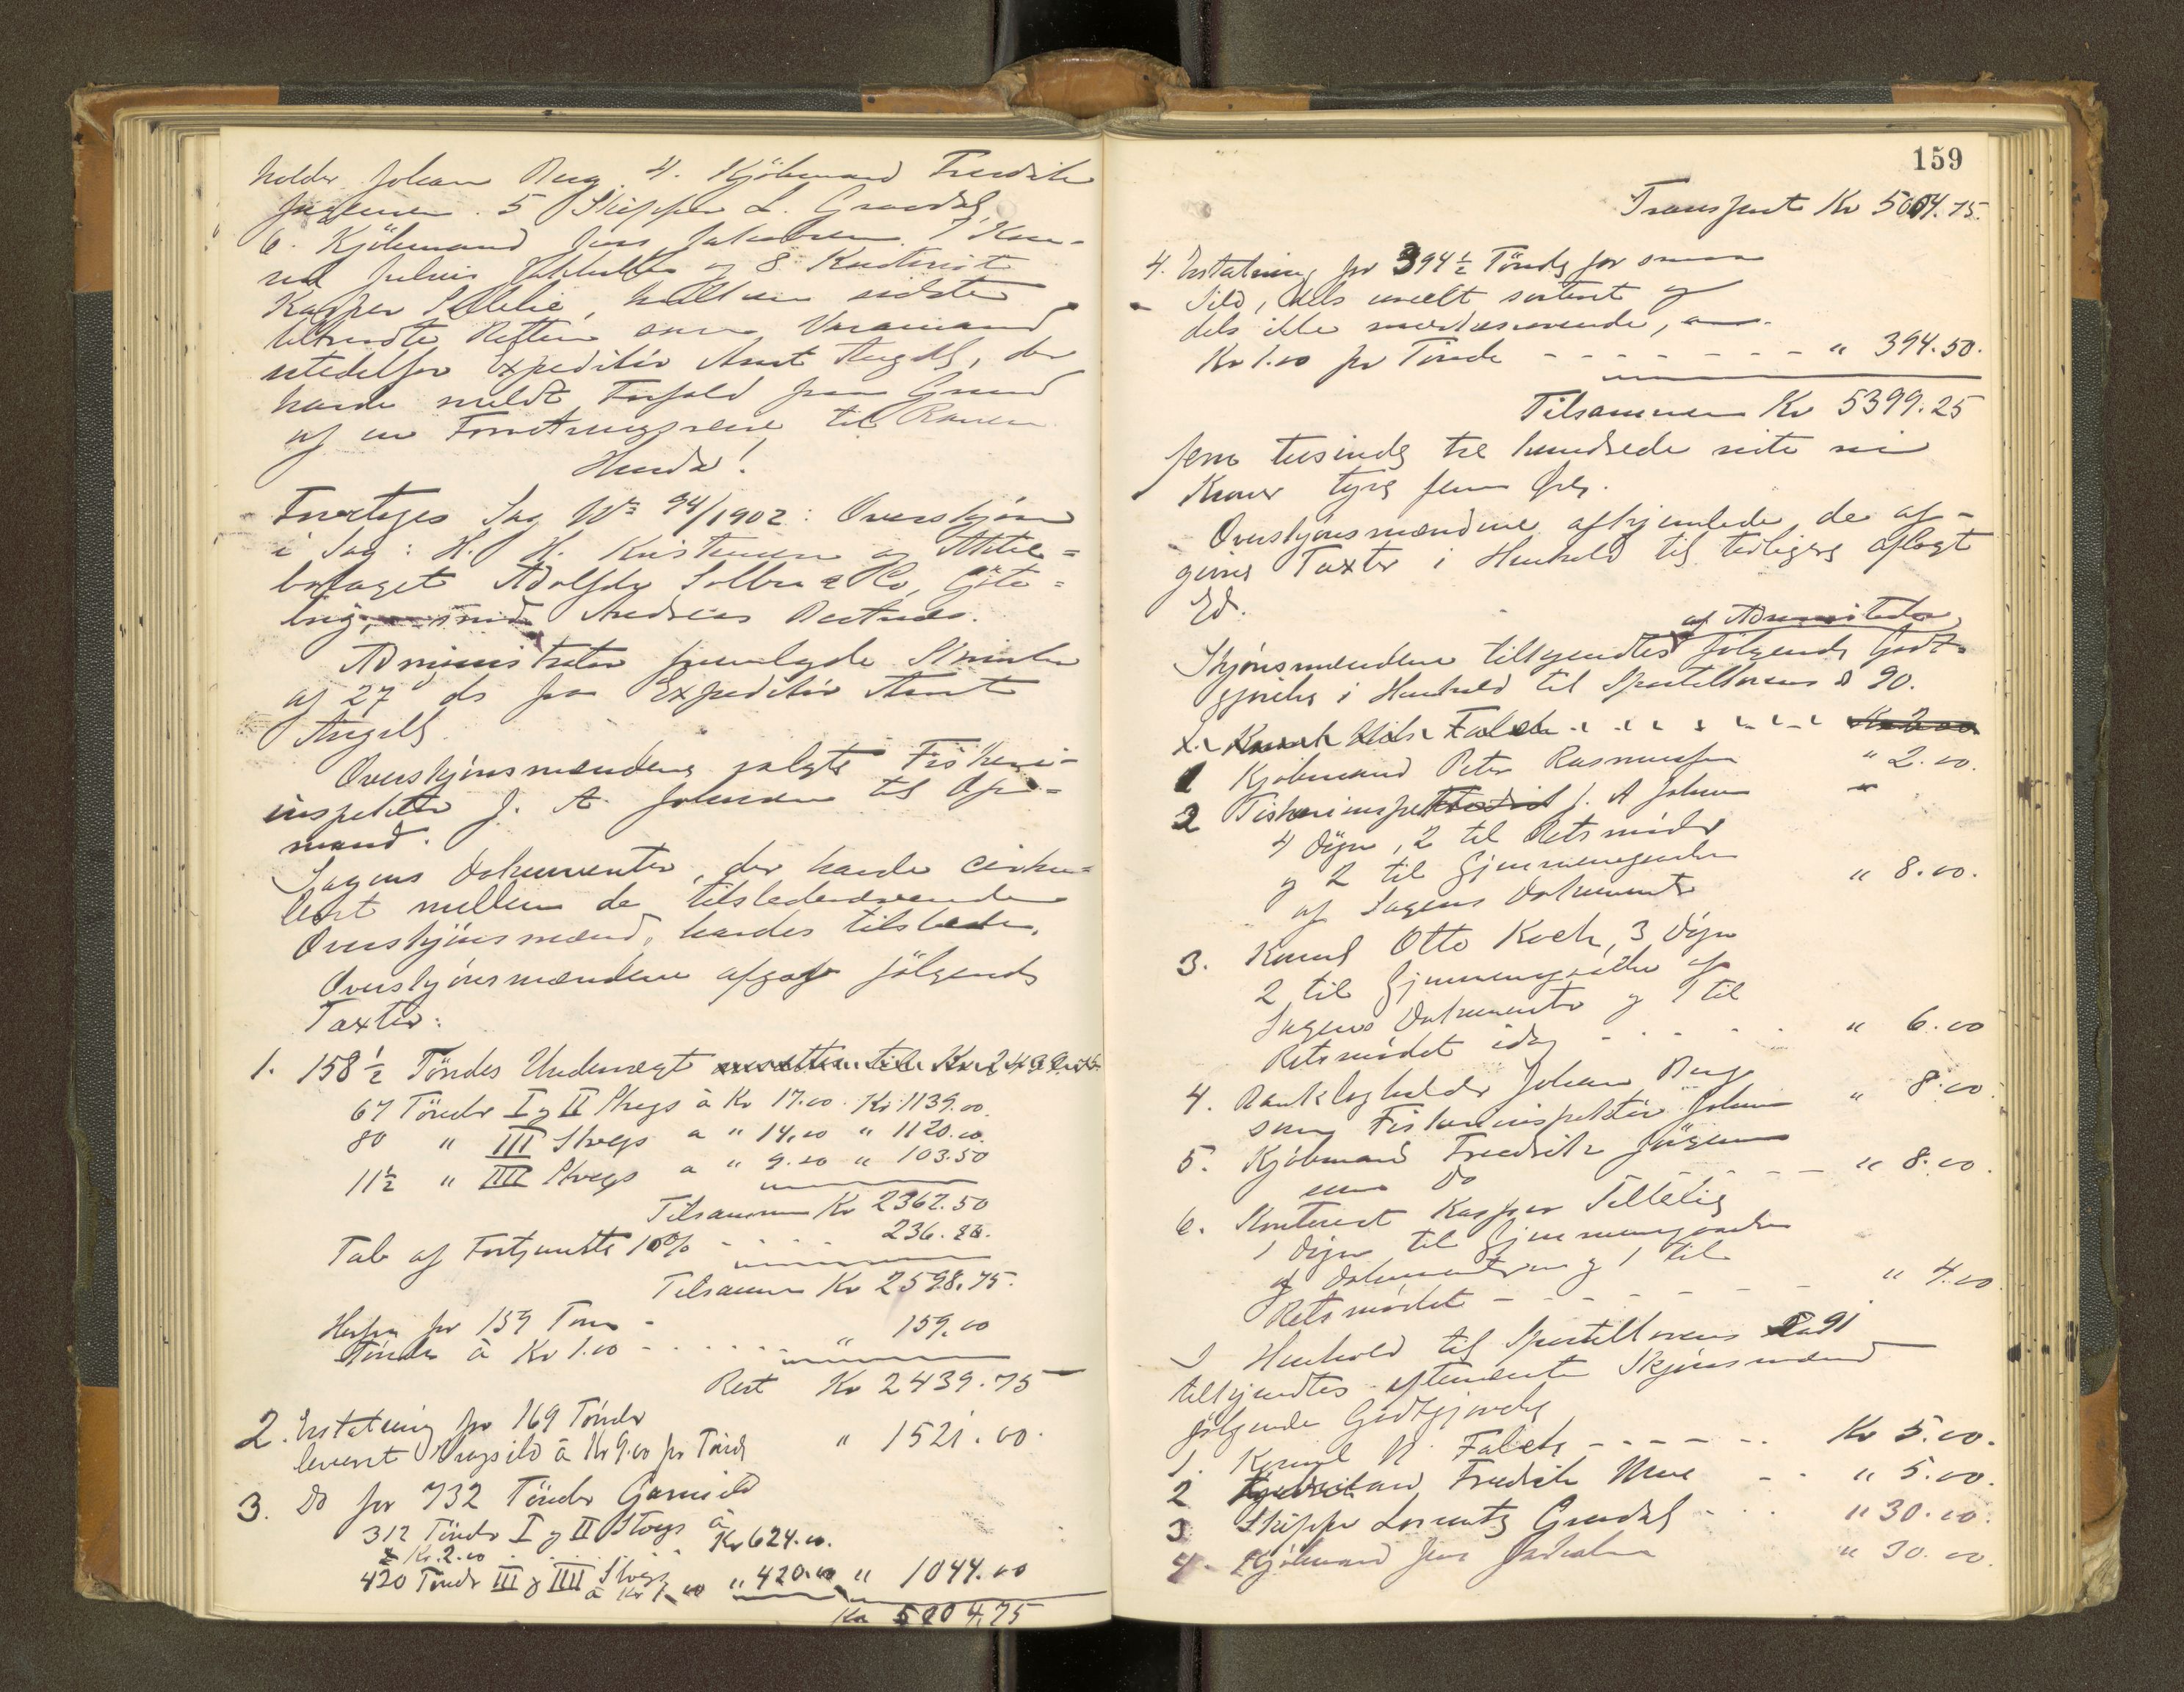 holder Johan Berg. 4. Kjöbmand Fredrik
Jörgensen. 5 Skipper L. Grøndal,
6. Kjöbmand Jens Jakobsen. 7 Kon-
sul Julius og 8. Kontorist
Kasper Tellelie, hvilken sidste
tiltraadte Retten som Varamand
istedetfor Expeditör Arnt Angell, der
havde meldt Forfald paa Grund
af en Forretningsreise til Ranen
Hvorda!
Foretoges Sag No 94/1902: Overskjön
i Sag: H. H. Kristensen og Aktie=
bolaget Adolfh Sollbru & Co, Göte=
borg, mod Andreas Aastnes.
Administrator fremlagde Skrivelse
af 27 ds fra Expeditör Arnt
Angell.
Overskjönsmændene valgte Fiskeri-
inspektör J. A. Johnsen til Op=
mand.
Sagens Dokumenter, der havde cirku=
leret mellem de tilstedeværende
Overskjönsmænd, havdes tilstede.
Overskjönsmændene afgav fölgende
Taxter:
1. 158 1/2 Töndes Undervegt
67 Tönder I og II Slags à Kr 17.00 Kr 1139.00
80 " III Slags a " 14,00 " 1120.00
11 1/2 " IIII Slags a " 9.00 " 103.50
Tilsammen Kr 2362.50
Tab af Fortjeneste 10% - - - - 236.25.
Tilsammen Kr 2598.75.
Herfra for 159 Tom-
Tönder à Kr 1.00 - - - - - " 159.00
Rest Kr 2439.75
2. Erstatning for 169 Tönder
leveret Vragsild à Kr 9.00 pr Tönde " 1521.00.
3. Do for 732 Tönder Garnsild
312 Tönder I og II Slags à
Kr. 2.00 . . . . Kr 624.00.
420 Tönder III og IIII Slags
à Kr 1.00 " 420.00 " 1044.00
Kr 5004.75
159
Transport Kr 5004.75.
4. Erstatning for 394 1/2 Tönde for smaa
Sild, dels urelt sorteret og
dels ikke
Kr 1.00 pr Tönde - - - - - - - " 394.50.
Tilsammen Kr 5399.25
fem tusinde tre hundrede nite ni
Kroner tyve fem Öre.
Overskjönsmændene afhjemlede de af-
givne Taxter i Henhold til tidligere aflagt
Ed.
af Administrator
Skjönsmændene tilkjendtes fölgende Godt-
gjörelse i Henhold til Sportellovens § 90.
1. Konsul Nils Falck . . . . . . . . Kr 2.00
1 Kjöbmand Peter Rasmussen " 2.00.
2 Fiskeriinspektör J. A Johnsen
4 Dögn, 2 til Retsmöder
og 2 til Gjennemgaaelse
af Sagens Dokumenter " 8.00.
3. Konsul Otto Koch, 3 Dögn
2 til Gjennemgaaelse af
Sagens Dokumenter og 1 til
Retsmödet idag - - - - " 6.00
4. Banklagholder Johan Berg
som Fiskeriinspektör Johnsen " 8.00.
5. Kjöbmand Fredrik Jörgensen
som Do - - - - - " 8.00.
6. Kontorist Kasper Tellelie
1 Dögn til Gjennemgaaelse
af Dokumenterne og 1 til
Retsmödet - - - - - - - " 4.00
I Henhold til Sportellovens § 91
tilkjendtes eftternævnte Skjönsmænd
fölgende Godtgjörelse
1. Konsul N. Falck - - - - - - Kr 5.00.
2 Fredrik Moe - - " 5.00.
3 Skipper Lorentz Grøndal - . . " 30.00.
4. Kjöbmand Jens Jakobsen " 30.00.